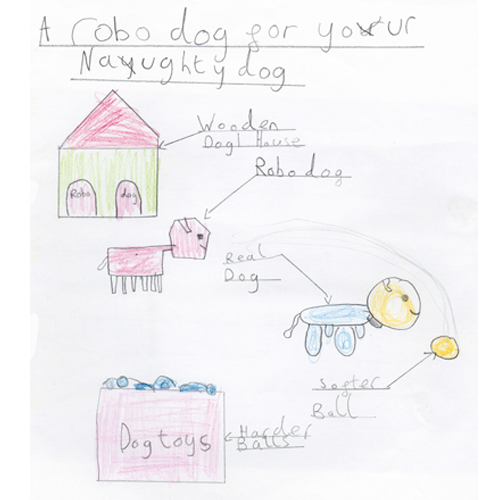 A robo dog for your
Naughty dog
Wooden
Dog House
Robo dog
Robo dog
Real
Dog
Softer
Ball
Dog toys
Harder
Balls